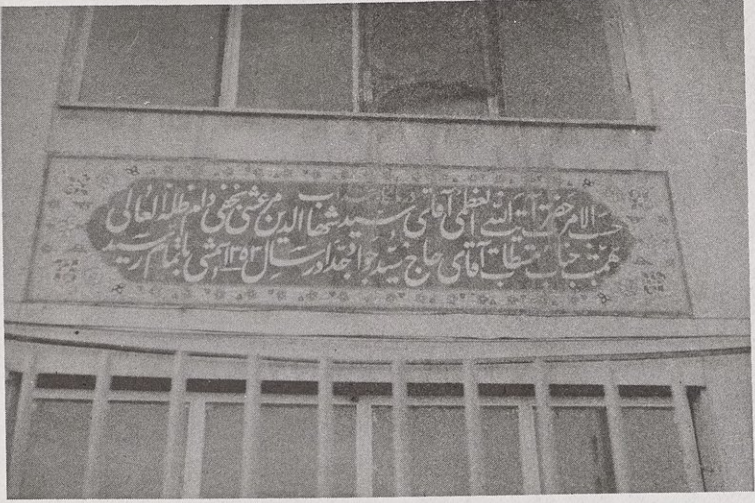 حسب الامر حضرت آیت الله العظمی آقای سید شهاب الدین مرعشی نجفی دام ظله العالی
بهمت جناب مستطاب آقای حاج سید جواد در سال ۱۳۵۳ شمسی باتمام رسید